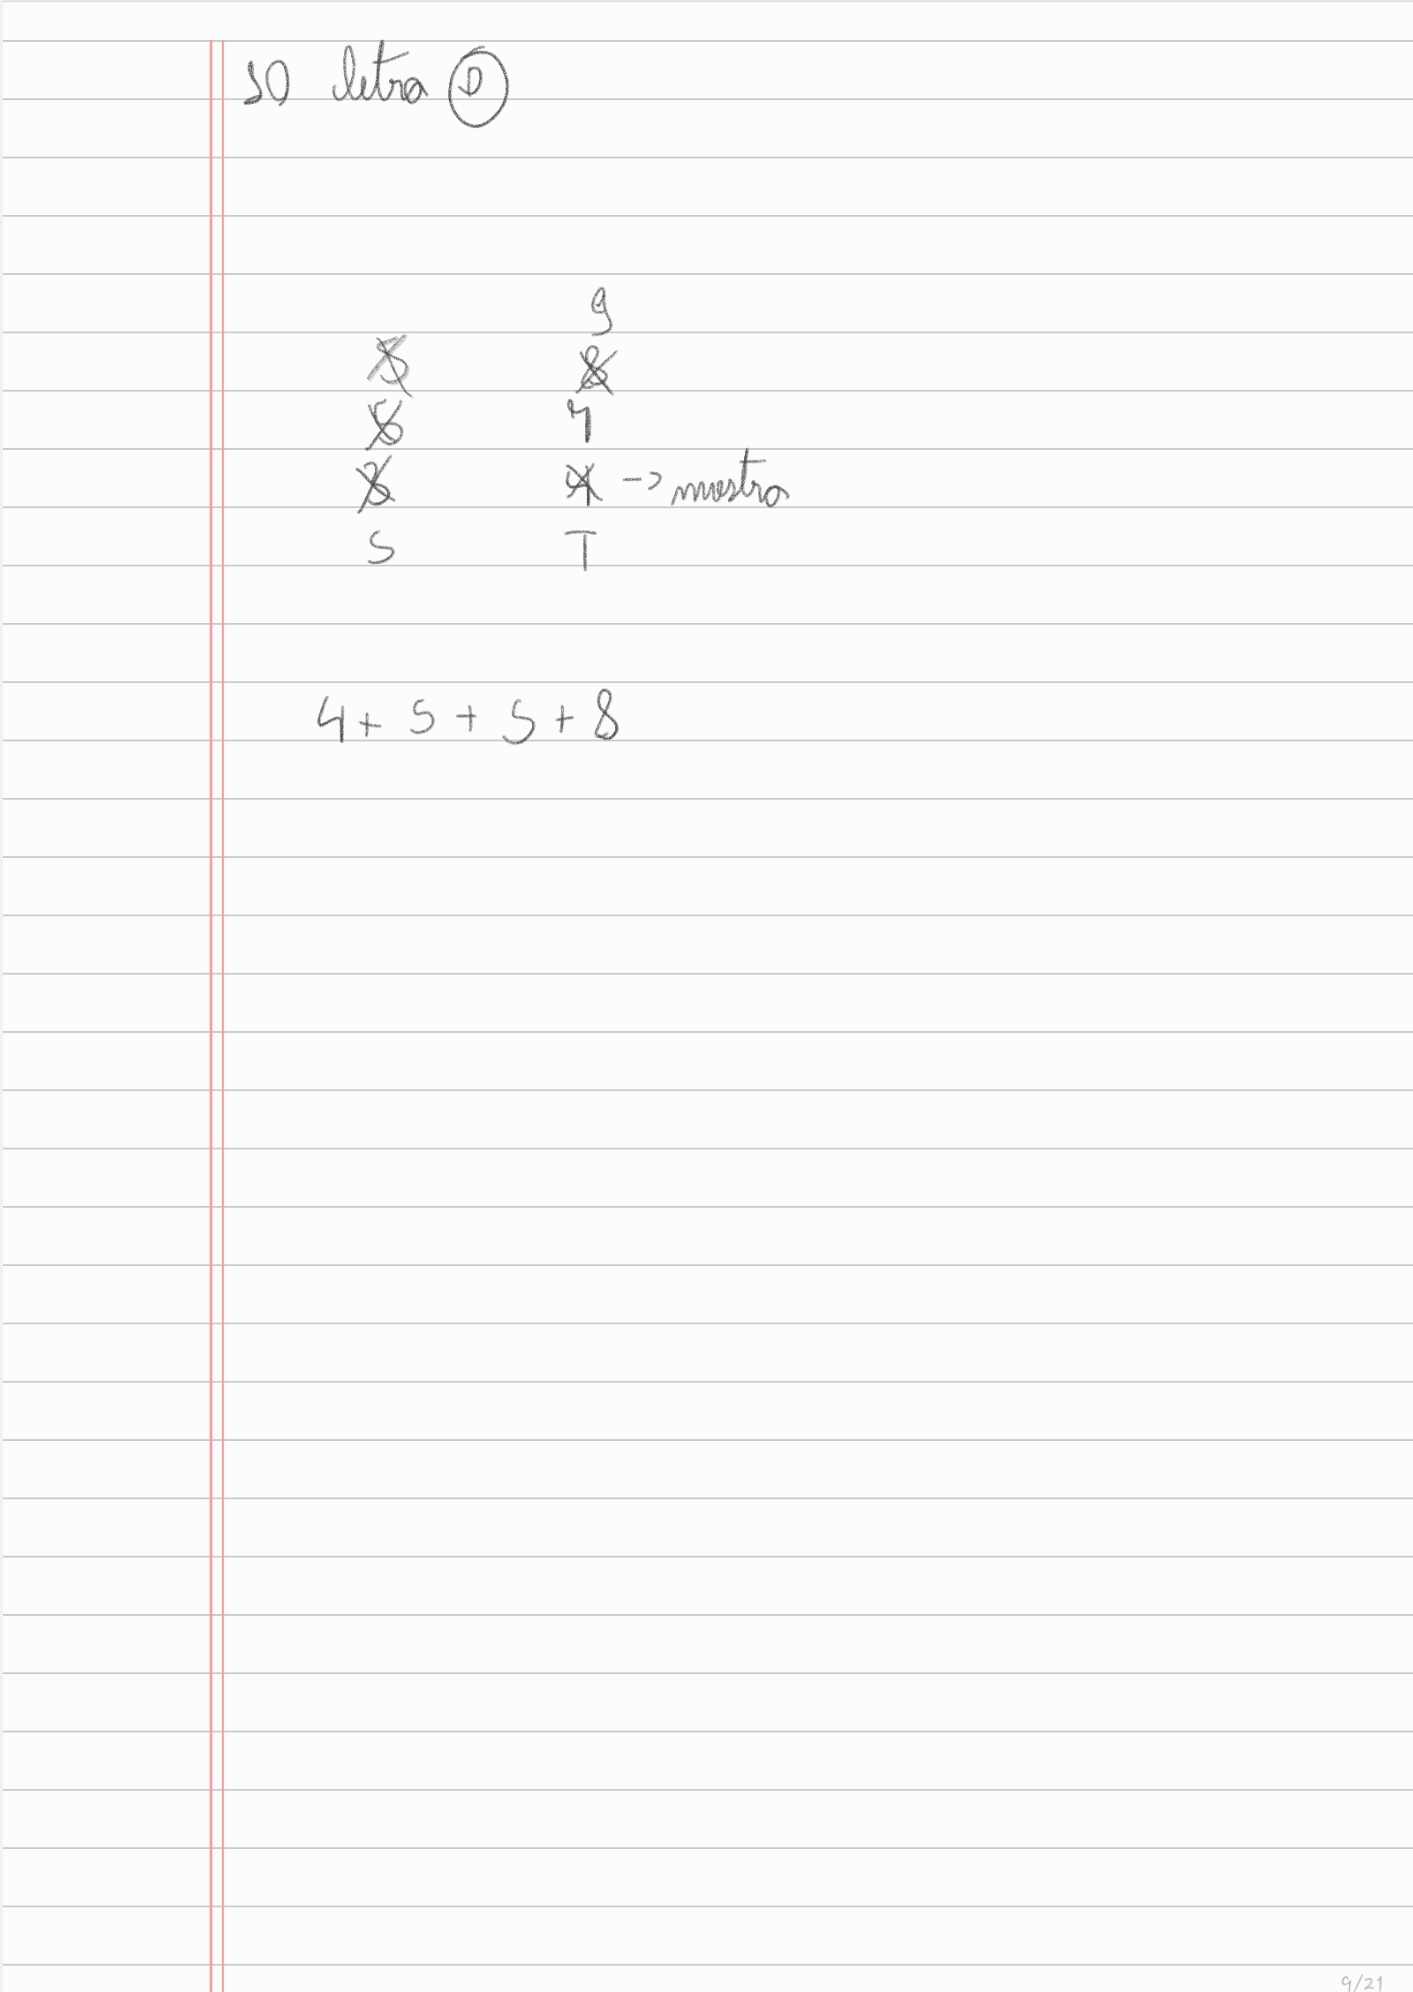 10 letra D
9
5 8
5 4
8 4 -> mostra
S T
4 + 5 + 5 + 8
9/21